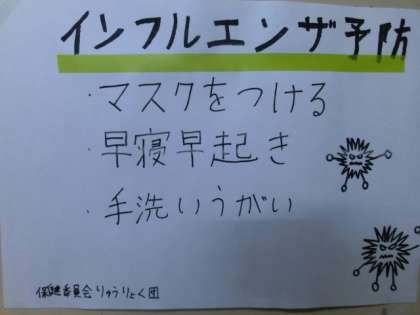 インフルエンザ予防
・マスクをつける
・早寝早起き
・手洗いうがい
保健委員会りゅうりょく団